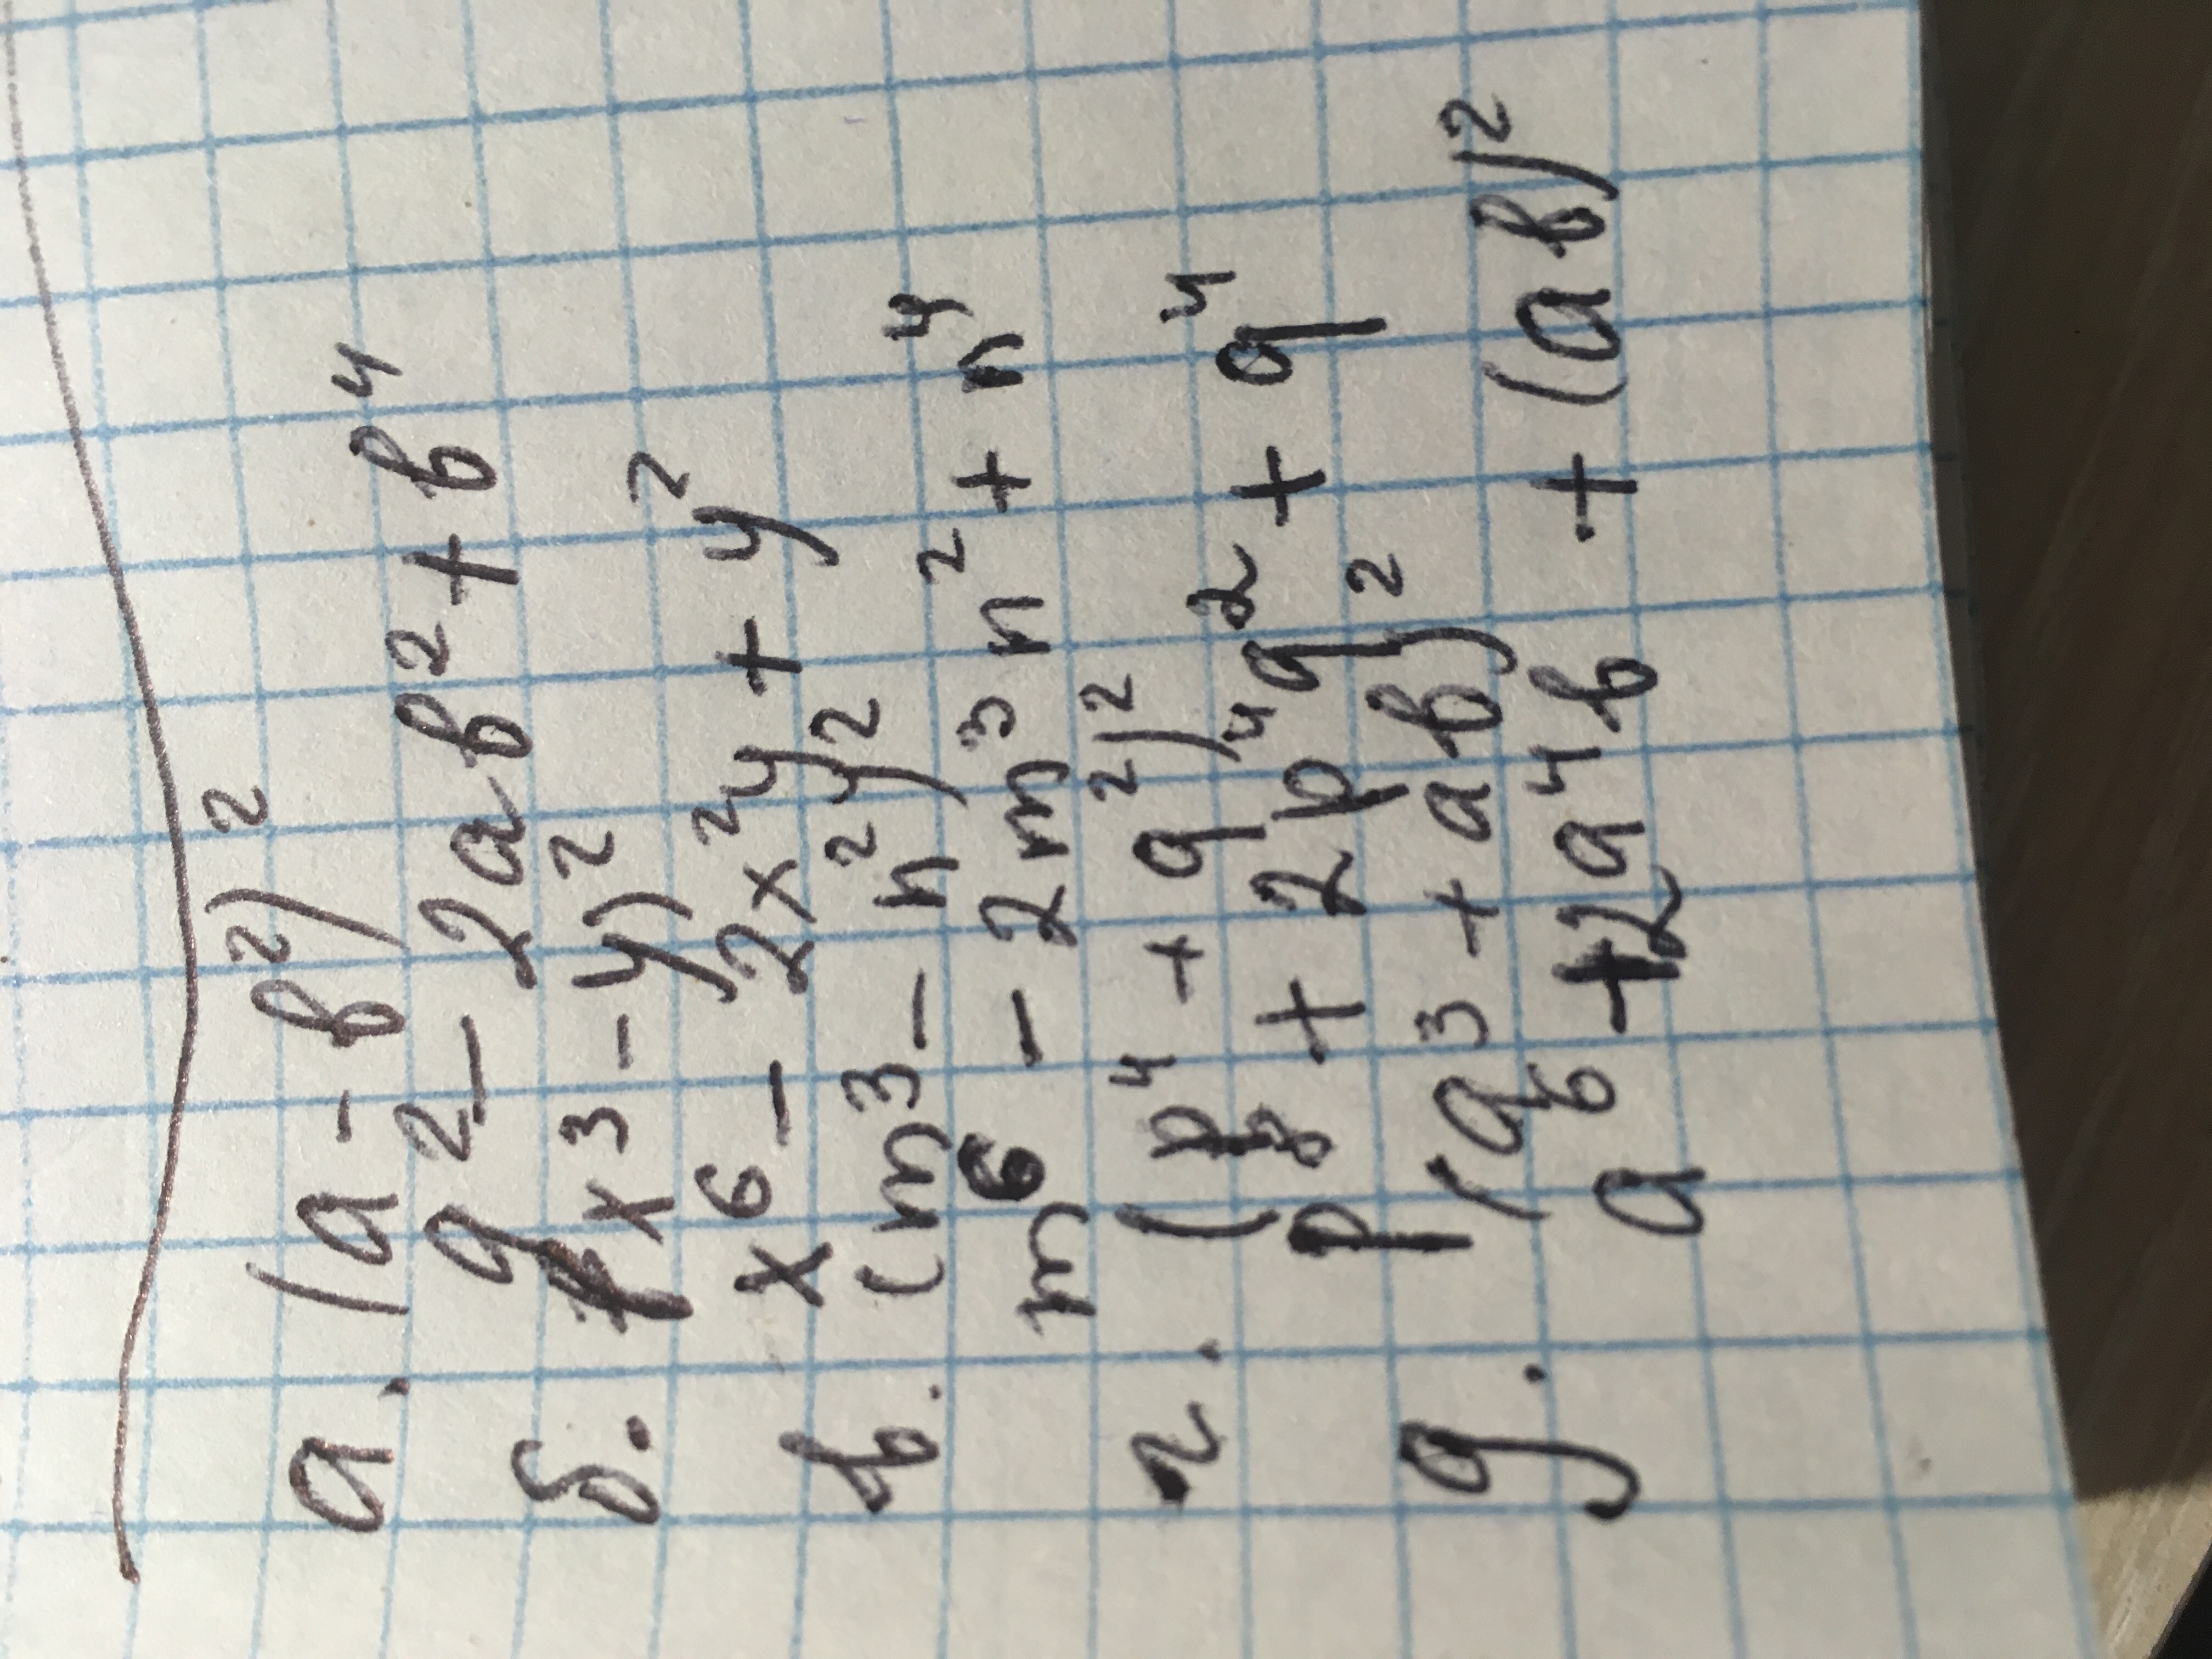 а. (a - b²)²
a² - 2ab² + b⁴
б. (x³ - y)²
x⁶ - 2x³y + y²
в. (m³ - n²)²
m⁶ - 2m³n² + n⁴
г. (p⁴ + q²)²
p⁸ + 2p⁴q² + q⁴
д. (a³ + ab)²
a⁶ + 2a⁴b + (ab)²